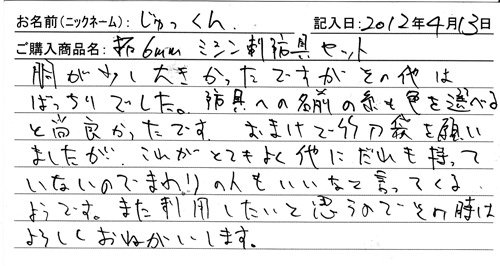 お名前(ニックネーム): じゅっくん.
記入日: 2012年4月13日
ご購入商品名: 拓6mm ミシン刺防具セット
胴が少し大きかったですがその他は
ばっちりでした。防具への名前の糸も色を選べる
と尚良かったです おまけで竹刀袋を願い
ましたが、これがとてもよく他にだれも持って
いないのでまわりの人もいいなと言ってくる
ようです。また利用したいと思うのでその時は
よろしくおねがいします。